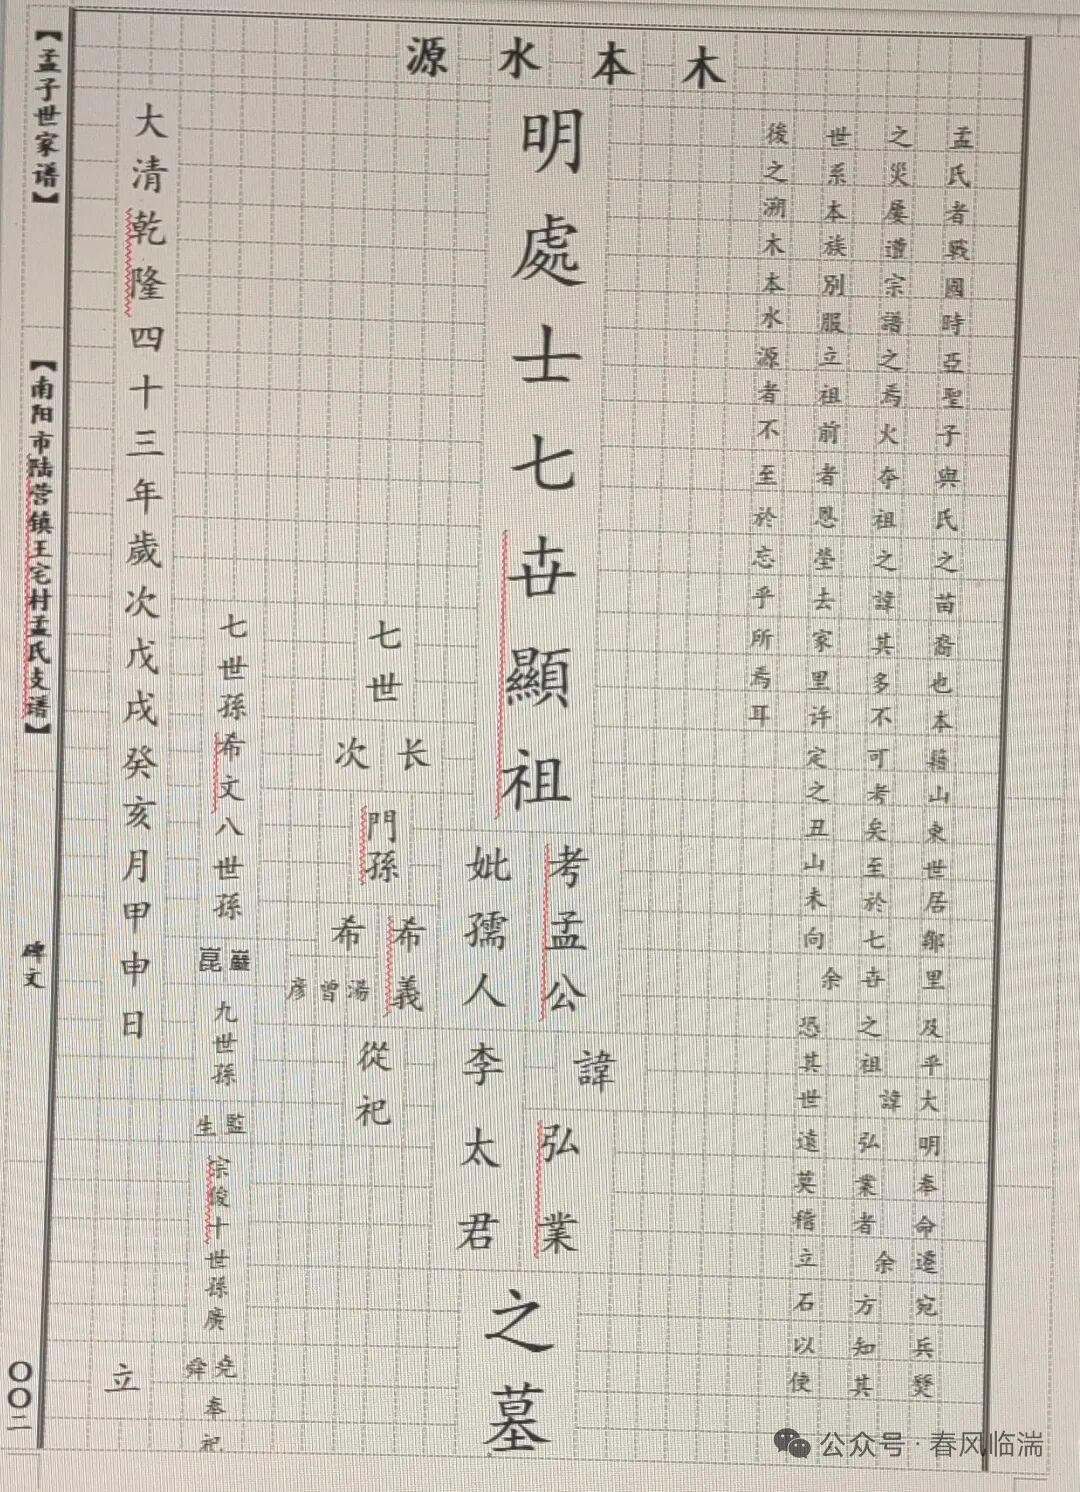 木本水源
孟氏者戰國時亞聖子與氏之苗裔也本籍山東世居鄒里及乎大明奉命遷宛兵燹
之災屢遭宗譜之焉火夺祖之諱其多不可考矣至於七世之祖諱弘業者余方知其
世系本族別服立祖前者恩塋去家里许定之丑山未向余恐其世遠莫稽立石以使
後之溯木本水源者不至於忘乎所焉耳
明處士七世顯祖
考孟公諱弘業
妣孺人李太君
之墓
七世
长門孫希義
次門孫希湯曾彦
從祀
七世孫希文八世孫巖崑九世孫監生宗俊十世孫廣堯舜奉祀
立
大清乾隆四十三年歲次戊戌癸亥月甲申日
【孟子世家谱】
【南阳市陆营镇王宅村孟氏支谱】
碑文
〇〇二
公众号·春风临湍